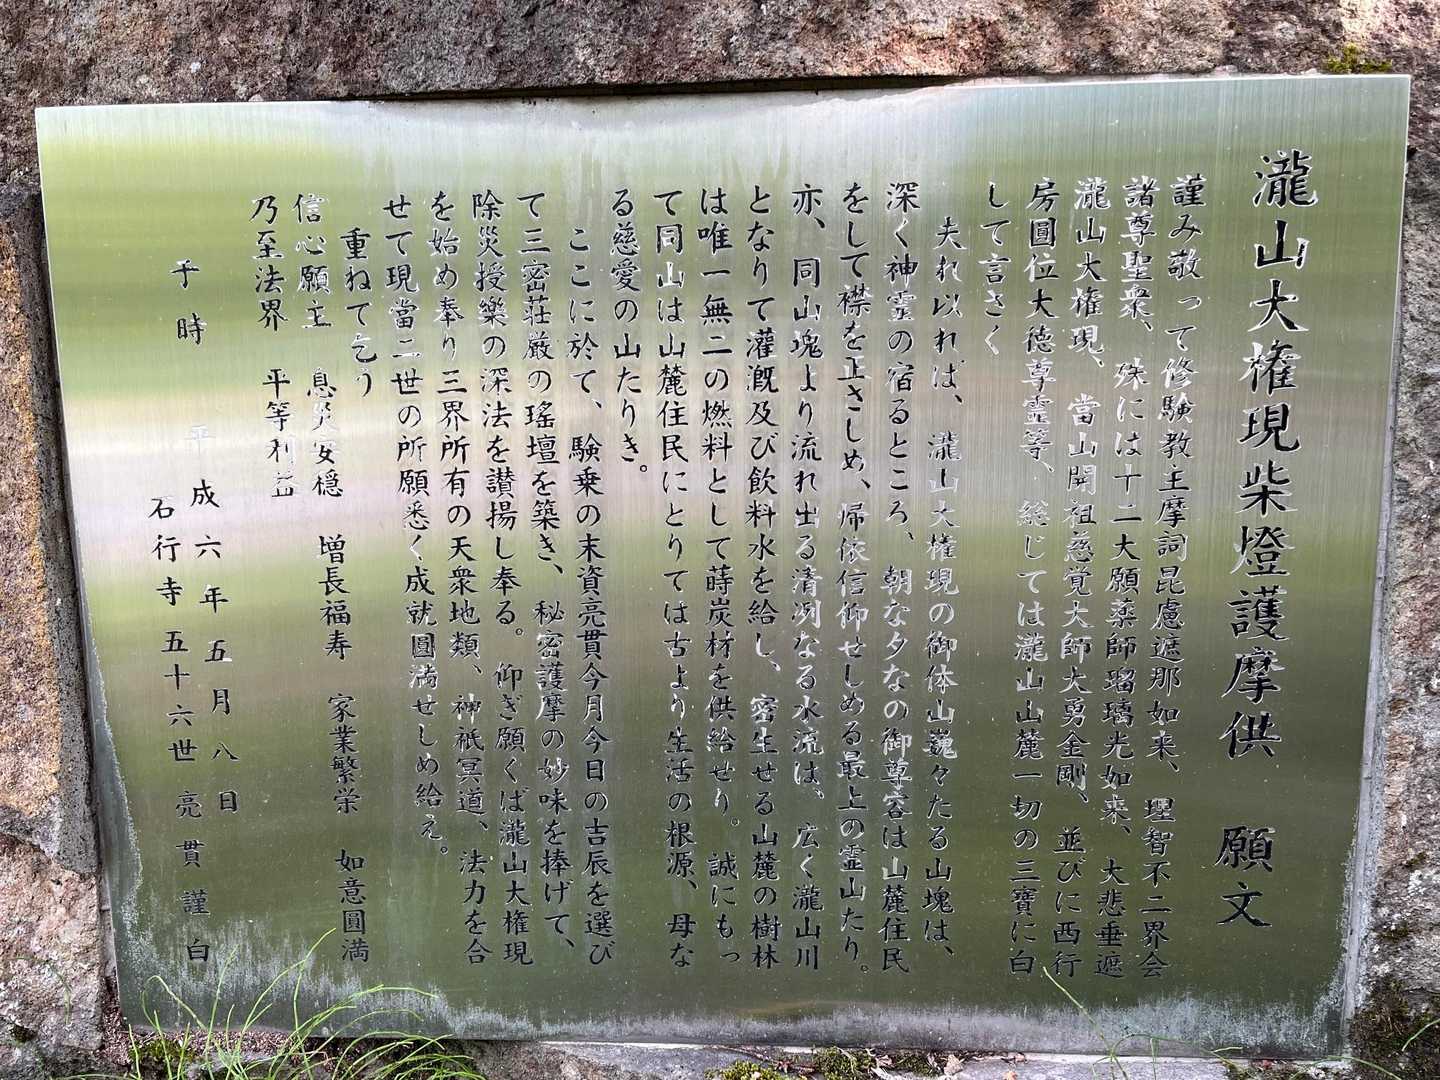 瀧山大権現柴燈護摩供　願文
謹み敬って修験教主摩詞毘盧遮那如来、理智不二界会
諸尊聖衆、殊には十二大願薬師瑠璃光如来、大悲垂遮
瀧山大権現、當山開祖慈覚大師大勇金剛、並びに西行
房圓位大徳尊霊等、総じては瀧山山麓一切の三寶に白
して言さく
夫れ以れば、瀧山大権現の御体山巍々たる山塊は、
深く神霊の宿るところ、朝な夕なの御尊容は山麓住民
をして襟を正さしめ、帰依信仰せしめる最上の霊山たり。
亦、同山塊より流れ出る清冽なる水流は、広く瀧山川
となりて灌漑及び飲料水を給し、密生せる山麓の樹林
は唯一無二の燃料として蒔炭材を供給せり。誠にもっ
て同山は山麓住民にとりては古より生活の根源、母な
る慈愛の山たりき。
ここに於て、験乗の末資亮貫今月今日の吉辰を選び
て三密荘厳の瑤壇を築き、秘密護摩の妙味を捧げて、
除災授樂の深法を讃揚し奉る。仰ぎ願くば瀧山大権現
を始め奉り三界所有の天衆地類、神祇冥道、法力を合
せて現當二世の所願悉く成就圓満せしめ給え。
重ねて乞う
信心願主　息災安穏　増長福寿　家業繁栄　如意圓満
乃至法界　平等利益
于時　平成六年五月八日
石行寺五十六世　亮貫謹白